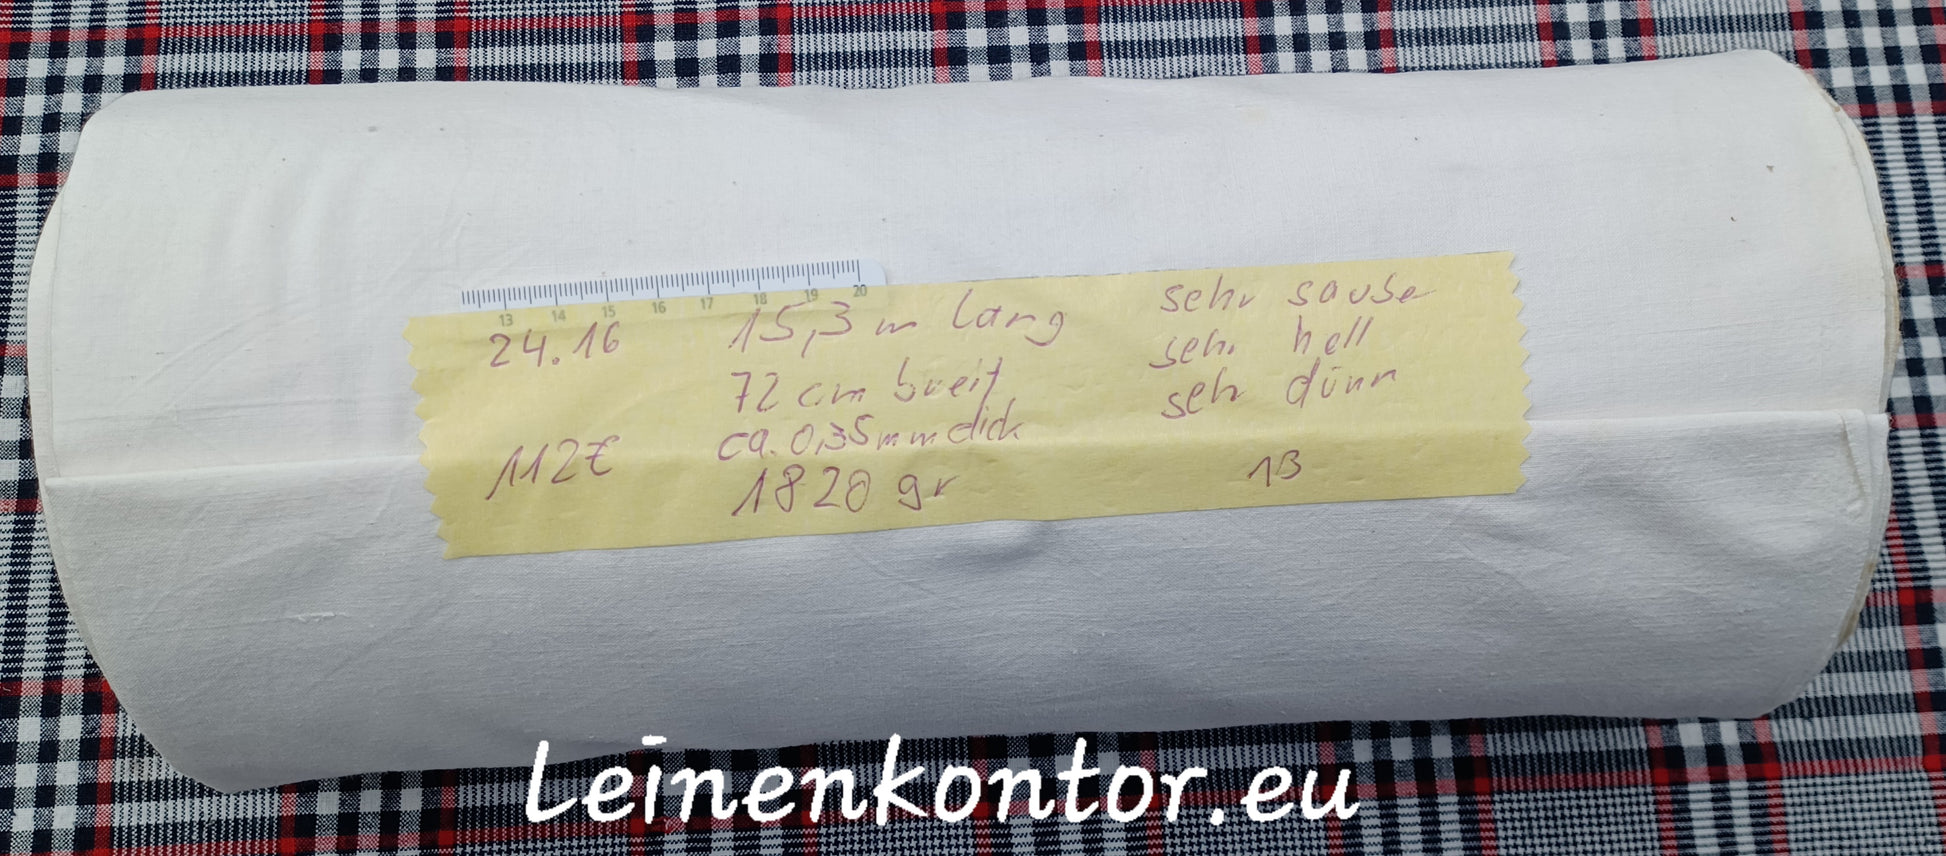 13 14 15 16 17 18 19 20
24.16
112€
15,3 m lang
72 cm breit
ca. 0,35 mm dick
1820 gr
sehr sauber
sehr hell
sehr dünn
1B
Leinenkontor.eu